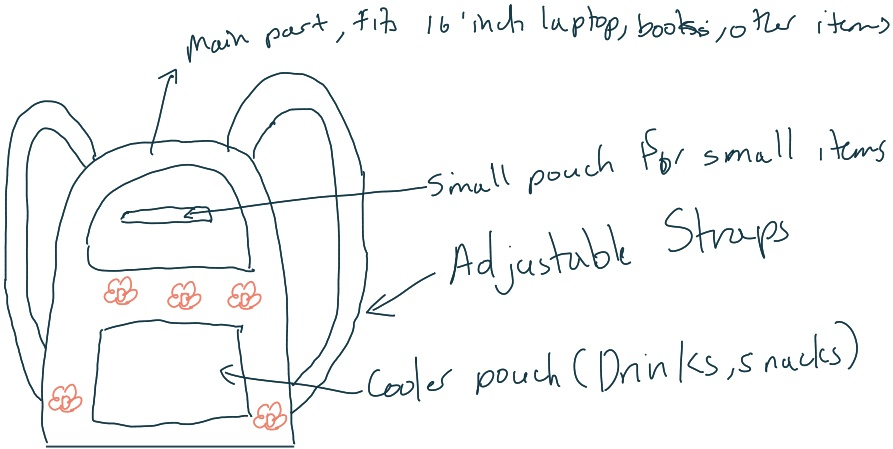 Main part, fits 16 inch laptop, books, other items
Small pouch for small items
Adjustable Straps
Cooler pouch (Drinks, snacks)